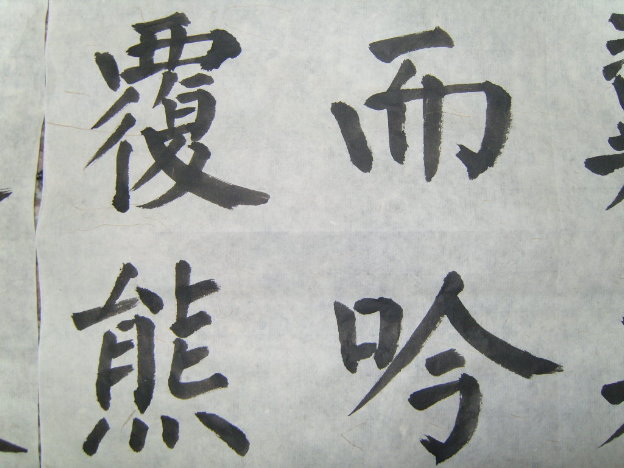 而吟
覆熊